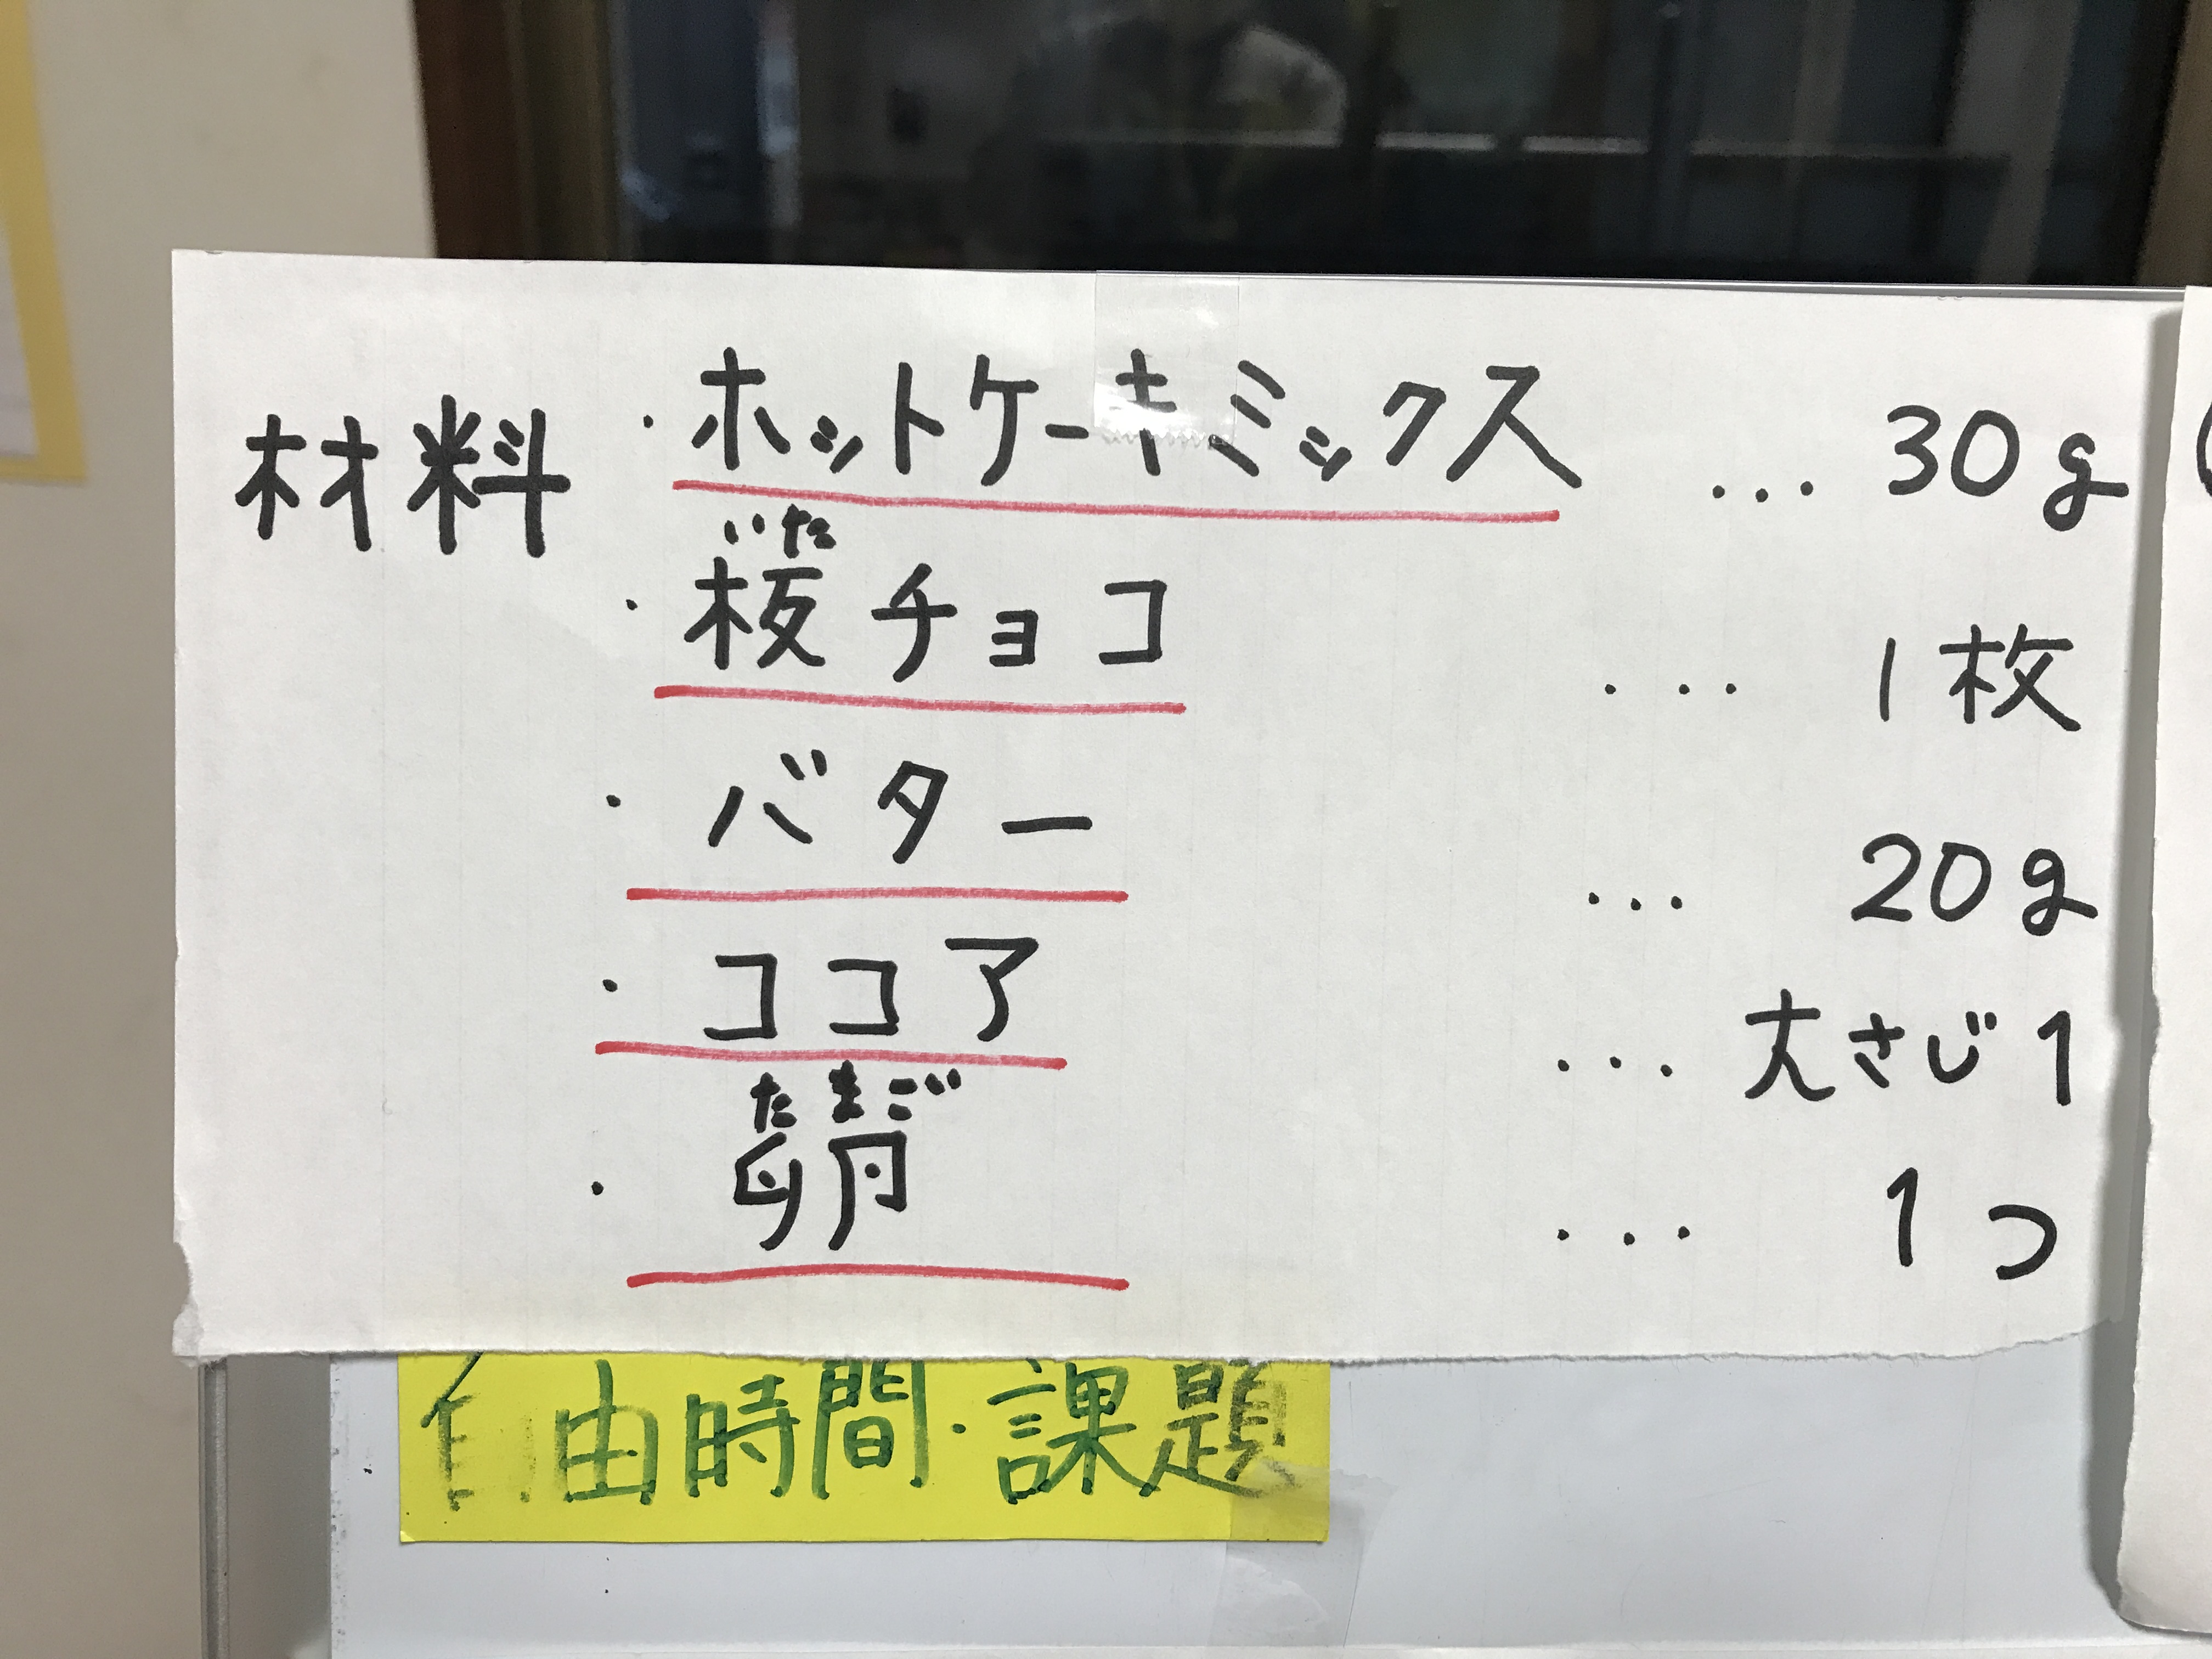 材料 ・ホットケーキミックス ... 30g
いた
・板チョコ ... 1枚
・バター ... 20g
・ココア ... 大さじ1
たまご
・卵 ... 1つ
自由時間・課題